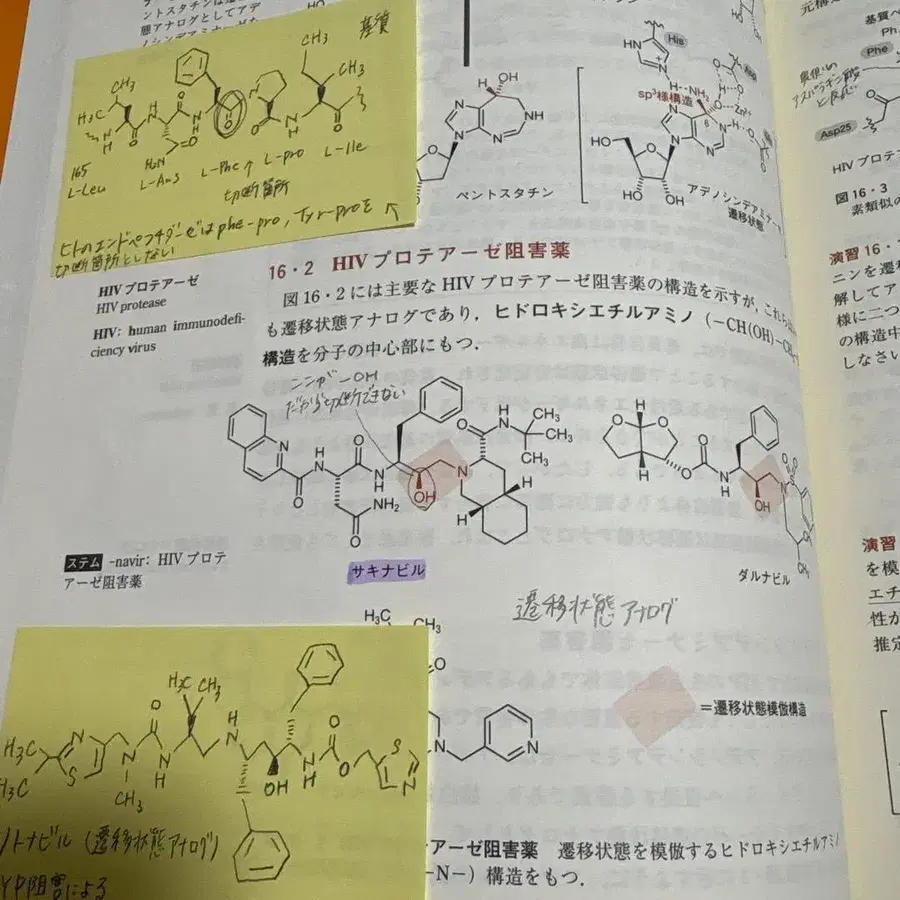 ントスタチンは遷
態アナログとしてアデ
ノシンデアミナーゼ
HO
基質
CH₃
CH₃
H₃C
CH₃
N
H
O
H₂N
165
L-Leu
L-Ans
L-Phe↑
L-pro
L-Ile
切断箇所
ヒトのエンドペプチダーゼはphe-pro, Tyr-proを
切断箇所としない
H
OH
N
NH
ペントスタチン
His
HN
H
NH₂
sp³様構造
Zn²⁺
6
HO
HO
OH
アデノシンデアミナーゼ
遷移状態
元構造
基質ペ
Ph
Phe
アスパラギン酸
Asp25
HIV プロテ
図 16・3
素類似の
演習 16・
ニンを遷移
解してア
様に二つ
の構造中
しなさい
16・2 HIV プロテアーゼ阻害薬
HIV プロテアーゼ
HIV protease
HIV: human immunodefi-
ciency virus
図 16・2 には主要な HIV プロテアーゼ阻害薬の構造を示すが，これら
も遷移状態アナログであり，ヒドロキシエチルアミノ（−CH(OH)−CH
構造を分子の中心部にもつ．
ここが−OH
だから切断できない
N
H
O
NH₂
OH
CH₃
CH₃
CH₃
H
サキナビル
O
H
N
OH
ダルナビル
ステム -navir: HIV プロテ
アーゼ阻害薬
遷移状態アナログ
H₃C
CH₃
O
N
=遷移状態模倣構造
H₃C
CH₃
H₃C
H₃C
N
S
CH₃
O
N
H
OH
リトナビル（遷移状態アナログ）
YP阻害による
アーゼ阻害薬 遷移状態を模倣するヒドロキシエチルアミノ
−N−）構造をもつ．
演習
を模
エチ
性が
推定